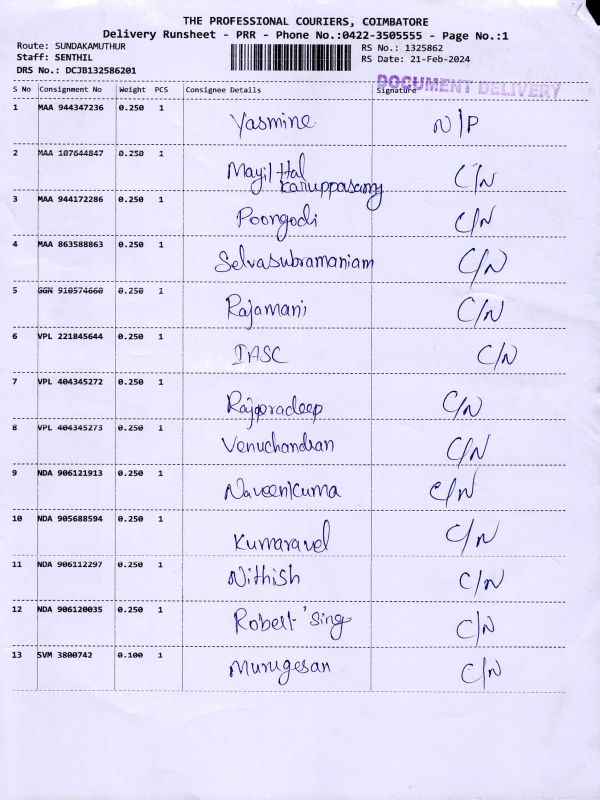 THE PROFESSIONAL COURIERS, COIMBATORE
Delivery Runsheet - PRR - Phone No.:0422-3505555 - Page No.:1
Route: SUNDAKAMUTHUR
Staff: SENTHIL
DRS No.: DCJB132586201
RS No.: 1325862
RS Date: 21-Feb-2024
DOCUMENT DELIVERY
S No Consignment No Weight PCS Consignee Details Signature
1 MAA 944347236 0.250 1 Yasmine N/P
2 MAA 107644847 0.250 1 Mayil Hal C/N
Karuppasamy
3 MAA 944172286 0.250 1 Poongodi C/N
4 MAA 863588863 0.250 1 Selvasubramaniam C/N
5 GGN 910574660 0.250 1 Rajamani C/N
6 VPL 221845644 0.250 1 IASC C/N
7 VPL 404345272 0.250 1 Rajapradeep C/N
8 VPL 404345273 0.250 1 Venuchandran C/N
9 NDA 906121913 0.250 1 Naveenkuma C/N
10 NDA 905688594 0.250 1 Kumaravel C/N
11 NDA 906112297 0.250 1 Nithish C/N
12 NDA 906120035 0.250 1 Robert Sing C/N
13 SVM 3800742 0.100 1 Murugesan C/N